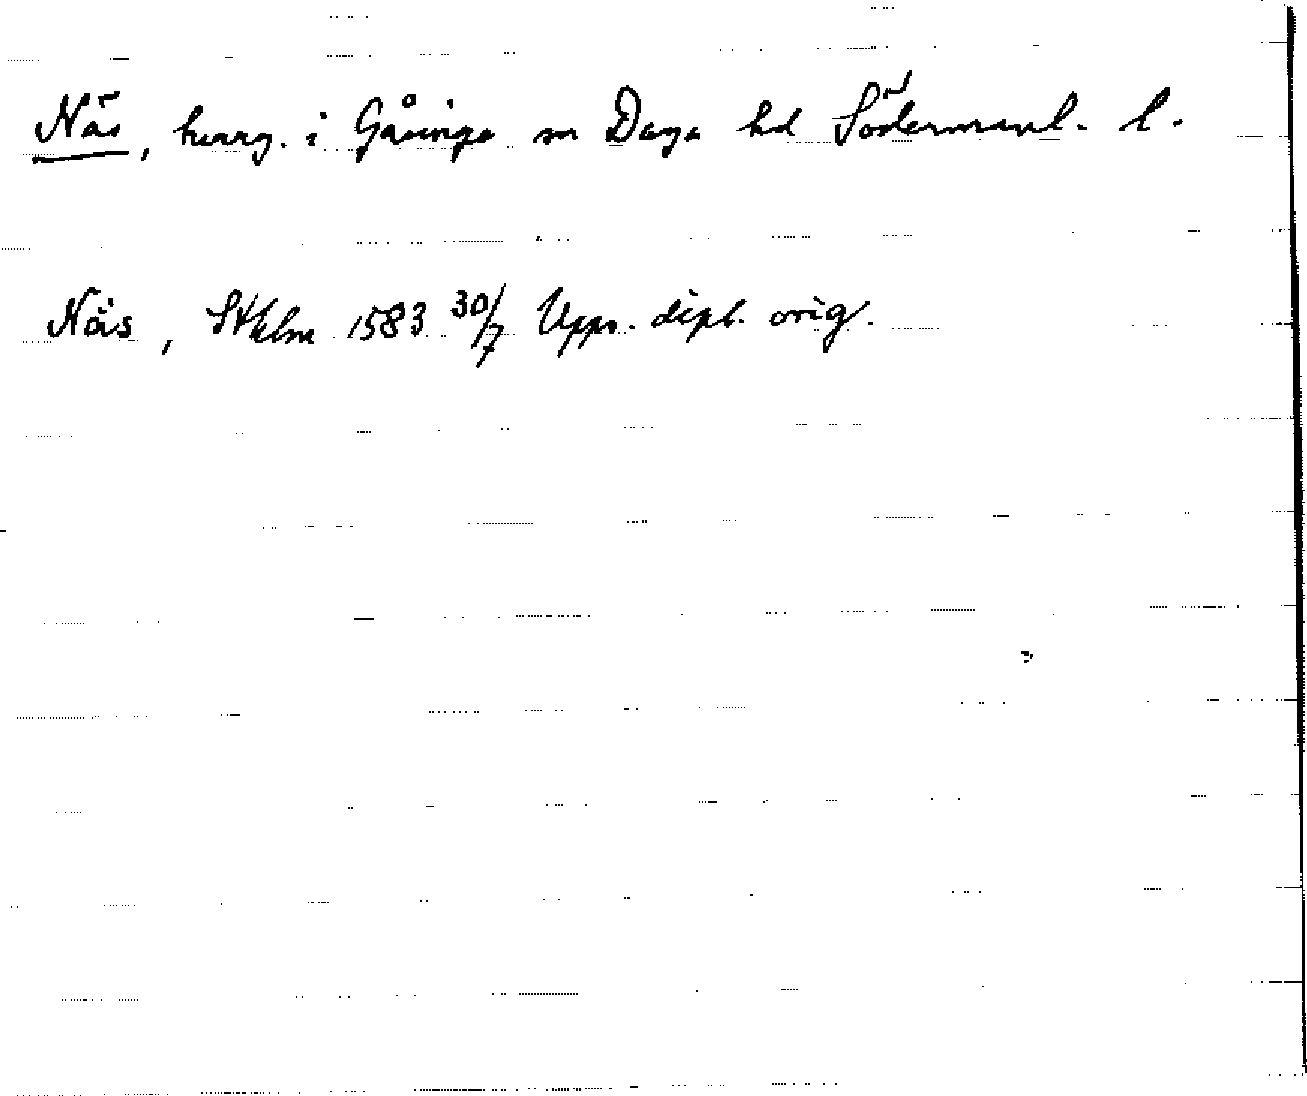 Näs, herrg. i Gåsinge sn Daga hd Södermanl. l.
Näs, Sthlm 1583 30/7 Upps. dipl. orig.